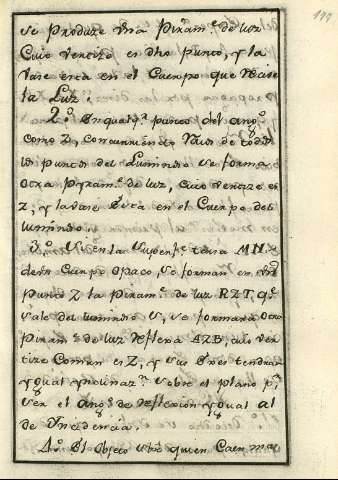 se Produze vna Piram.e de luz
Cuio vertize es dho punto, y la
Vase esta en el Cuerpo que
la Luz.
2.o En qualq.r punto del
como Z, concurriendo Raios de todos
los puntos del Luminoso se forma
otra Pyram.e de luz, cuio vertize es
Z, y la vase esta en el Cuerpo del
luminoso.
3.o Si en la superf.e tersa MN
de vn Cuerpo opaco se forman en vn
Punto Z la Piram.e de luz RZT, q.e
sale del luminoso S, se formará otro
Piram.e de luz reflexa AZB, cuio ver
tize Comun es Z, y sus exes tendran
ygual ynclinaz.n sobre el plano p.r
ser el ang.o de reflexion ygual al
de Incidencia.
4.o El objeto sobre quien Caen mas